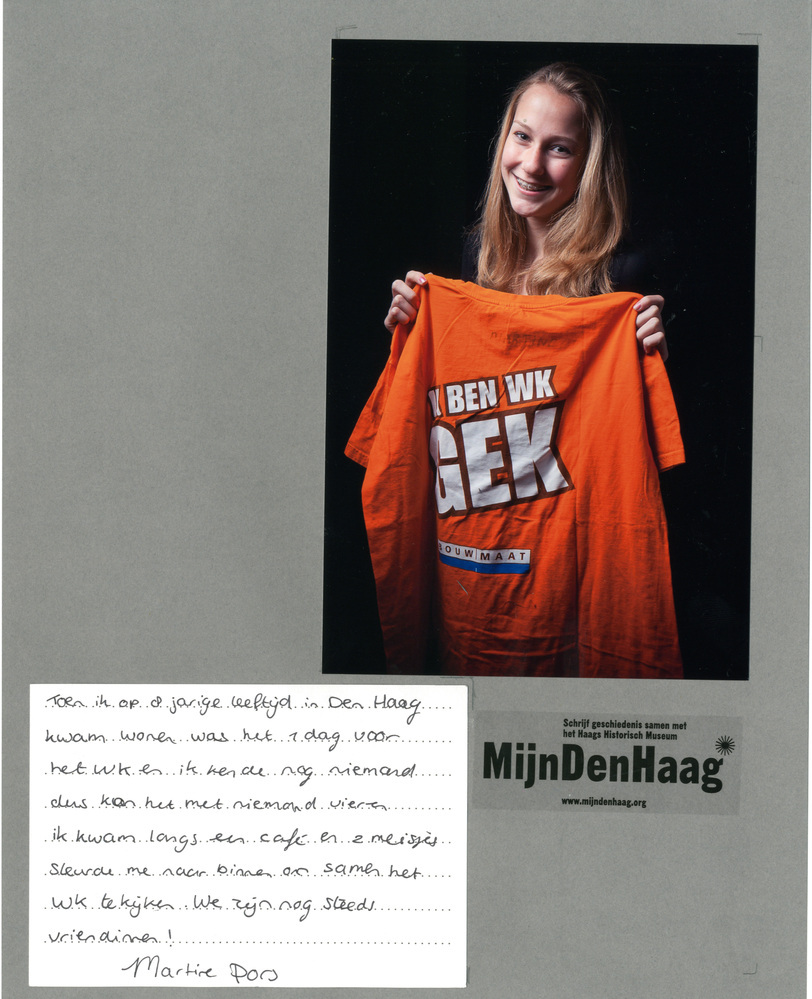 K BEN WK
GEK
BOUWMAAT
Toen ik op 8 jarige leeftijd in Den Haag
kwam wonen was het 1 dag voor
het WK en ik kende nog niemand
dus kon het met niemand vieren
ik kwam langs een café en 2 meisjes
sleurde me naar binnen om samen het
WK te kijken. We zijn nog steeds
vriendinnen!
Martine Pors
Schrijf geschiedenis samen met
het Haags Historisch Museum
MijnDenHaag
www.mijndenhaag.org